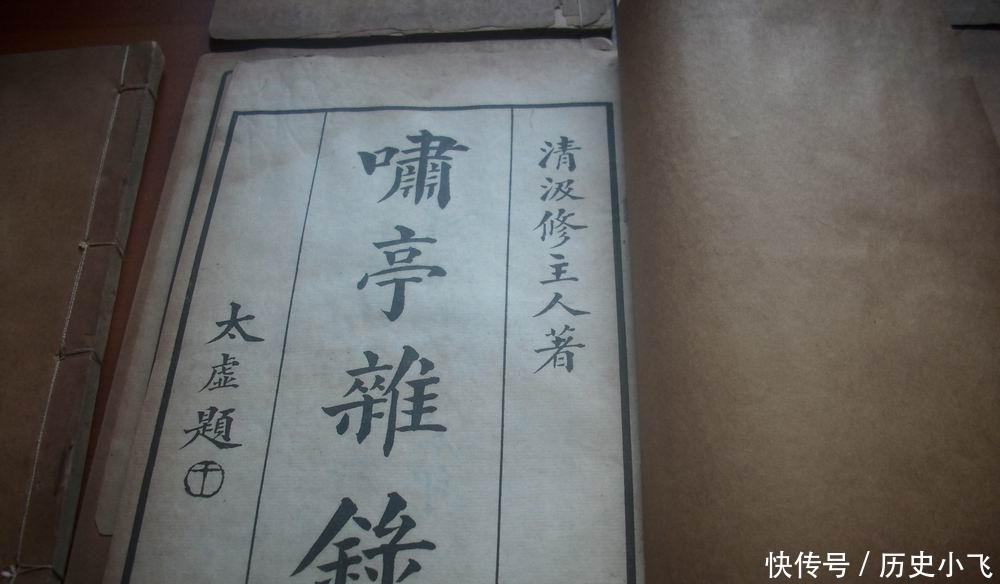 清汲修主人著
嘯亭雜錄
太虛題
快传号 / 历史小飞